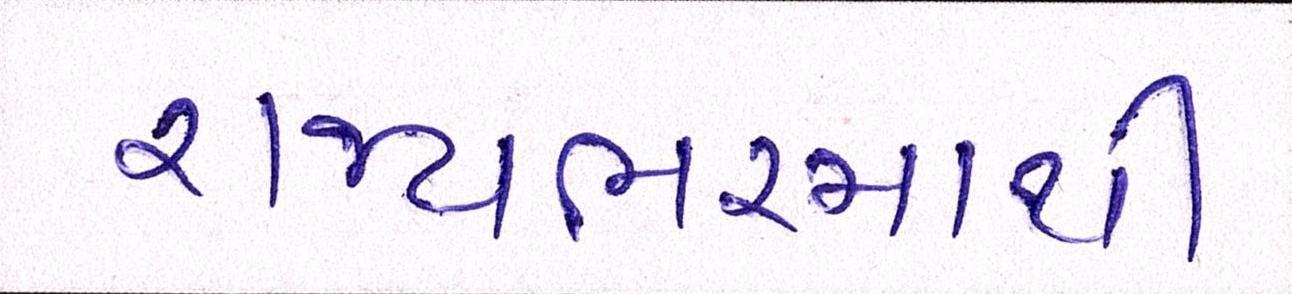 રાજ્યભરમાથી